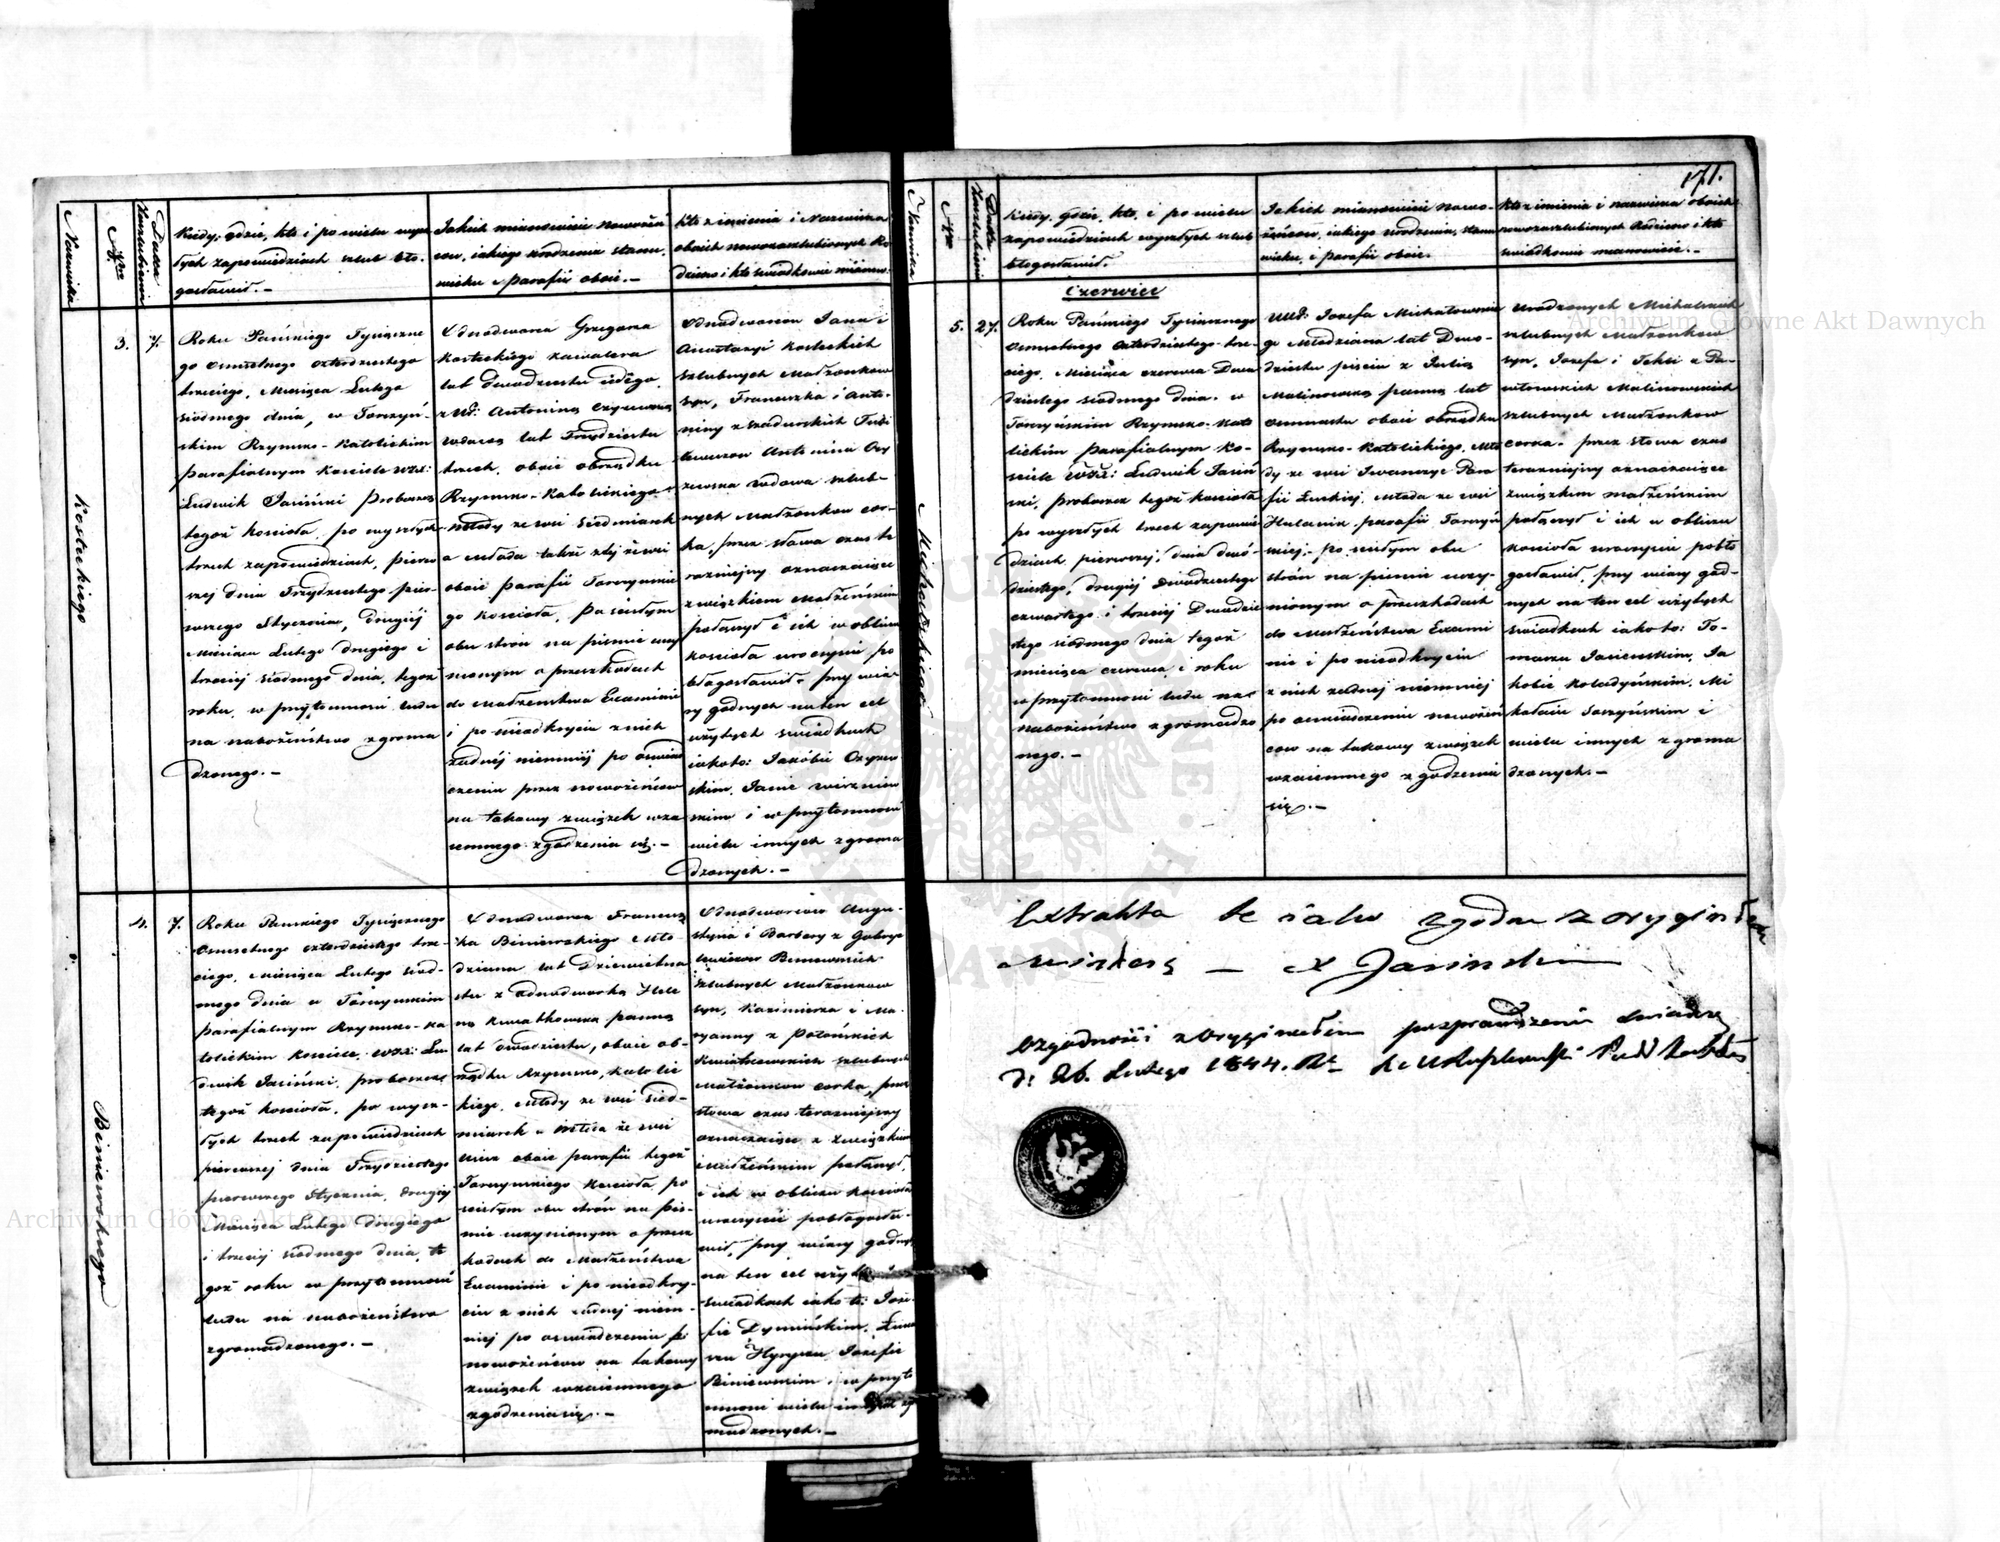 171.
Nazwiska
Nro
Data Zaszlubienia
Kiedy, gdzie, kto i po wielu wysz
łych zapowiedziach szlub bło.
gosławił. –
Jakich mianowicie nowożeń
ców, jakiego urodzenia stanu,
wieku i parafii oboie. –
Kto z imienia i Nazwiska
oboich nowozaszlubionych Ro
dziców i kto świadkowie mianow:
Kosteckiego
3. 7.
Roku Pańskiego Tysiączne
go osmsetnego czterdziestego
trzeciego, Miesiąca Lutego
siódmego dnia, w Torczyń-
skim Rzymsko-Katolickim
parafialnym Kościele WJX:
Ludwik Jasiński Proboszcz
tegoż Kościoła, po wyszłych
trzech zapowiedziach, pierw
szej dnia Trzydziestego pier-
wszego Stycznia, drugiéj
Miesiąca Lutego drugiego i
trzeciej siódmego dnia, tegoż
roku, w przytomności ludu
na nabożeństwo zgroma
dzonego. –
Odnodworca Grzegorza
Kosteckiego kawalera
lat dwadziestu
z Antoniną
wdową lat Trzydziestu
trzech, oboie obrządku
Rzymsko-Katolickiego
Młody ze wsi Siedmiarek
a Młoda także z téj że wsi
oboie parafii Torczyńskie
go Kościoła, po ścisłym
obu stron na piśmie uczy
nionym o przeszkodach
do Małżeństwa Examinie
i po nieodkryciu z nich
żadnéj niemniéj po oświad
czeniu przez nowożeńców
na takowy związek wza
iemnego zgodzenia się. –
Odnodworców Jana i
Anastazyi Kosteckich
szlubnych Małżonków
syn, Franciszka i Anto-
niny z
Antonina
wdowa szlub-
nych Małżonków cór-
ka, przez słowa czas te
razniejszy oznaczaiące
związkiem Małżeńskim
połączył i ich w obliczu
Kościoła uroczyście po
błogosławił, przy wia-
ry godnych na ten cel
użytych świadkach
iakoto: Jakóbie
skim, Janie
skim i w przytomności
wielu innych zgroma
dzonych. –
Biniewskiego
4. 7.
Roku Pańskiego Tysiącznego
Osmsetnego czterdziestego trze-
ciego, Miesiąca Lutego siód-
mego dnia w Torczyńskim
parafialnym Rzymsko-Ka
tolickim Kościele, WJX: Lu
dwik Jasiński, proboszcz
tegoż Kościoła, po wysz-
łych trzech zapowiedziach
pierwszej dnia Trzydziestego
pierwszego Stycznia, drugiéj
Miesiąca Lutego drugiego
i trzeciej siódmego dnia, te
goż roku w przytomności
ludu na nabożeństwo
zgromadzonego. –
Odnodworca Francisz
ka Biniewskiego Mło-
dziana lat Dziewietna
stu z Odnodworką Hele
ną Kwiatkowską panną
lat dwadziestu, oboie ob-
rządku Rzymsko, Katolic
kiego, Młody ze wsi Sied-
miarek a Młoda ze wsi
oboie parafii tegoż
Torczyńskiego Kościoła, po
ścisłym obu strón na piś-
mie uczynionym o przesz
kodach do Małżeństwa
Examinie i po nieodkry-
ciu z nich żadnej niem-
niej po oświadczeniu
nowożeńców na takowy
związek wzaiemnego
zgodzenia się. –
Odnodworców Augu-
styna i Barbary z
Biniewskich
Szlubnych Małżonków
syn, Kazimierza i Ma-
ryanny z
Kwiatkowskich szlubnych
Małżonków córka, przez
słowa czas teraznieyszy
oznaczaiące związkiem
Małżeńskim połączył,
i ich w obliczu Kościoła
uroczyście pobłogosła-
wił, przy wiary godnych
na ten cel użytych
świadkach iako to: Józe-
fie
Józefie
Biniewskim, i w przyto
mności wielu innych zgro
madzonych. –
Nazwiska
Nro
Data Zaszlubienia
Kiedy, gdzie, kto, i po wielu
zapowiedziach wyszłych szlub
błogosławił.
Jakich mianowicie nowo-
żeńców, iakiego urodzenia, stanu
wieku, i parafii oboie.
Kto z imienia i nazwiska oboich
nowozaszlubionych Rodziców i kto
świadkowie mianowicie. –
Michałowskiego
5. 27.
Czerwiec
Roku Pańskiego Tysiącznego
Osmsetnego czterdziestego trze-
ciego, Miesiąca czerwca Dwu
dziestego siódmego dnia. w
Torczyńskim Rzymsko-Kato
lickim parafialnym Ko-
ściele WJX: Ludwik Jasiń
ski, proboszcz tegoż Kościoła
po wyszłych trzech zapowie
dziach pierwszej, dnia dwu-
dziestego, drugiéj dwudziestego
czwartego i trzeciej Dwudzie
stego siódmego dnia tegoż
miesiąca czerwca i roku
w przytomności ludu na
nabożeństwo zgromadzo
nego. –
Józefa Michałowskie
go Młodziana lat Dwu-
dziestu pięciu z Julią
Malinowską panną lat
osmnastu oboie obrządku
Rzymsko-Katolickiego, Mło
dy ze wsi Iwanczyc Para
fii Łuckiej, Młoda ze wsi
parafii Torczyń
skiej, po ścisłym obu
strón na piśmie uczy-
nionym o przeszkodach
do Małżeństwa Exami
nie i po nieodkryciu
z nich żadnej niemniej
po oświadczeniu nowożeń
ców na takowy związek
wzaiemnego zgodzenia
się. –
Urodzonych
szlubnych Małżonków
syn, Józefa i Tekli z Pa-
włowskich Malinowskich
szlubnych Małżonków
córka. przez słowa czas
teraznieyszy oznaczaiące
związkiem małżeńskim
połączył i ich w obliczu
Kościoła uroczyście pobło
gosławił, przy wiary god-
nych na ten cel użytych
świadkach iako to: To-
maszu Ja
kóbie Mi
kołaiu i
wielu innych zgroma
dzonych. –
Extrakta te iako zgodne z oryginałem
– X Jasiński
O zgodności z Oryginałem po sprawdzeniu świadczę
D: 26. Lutego 1844. R
Archiwum Główne Akt Dawnych
Archiwum Główne Akt Dawnych